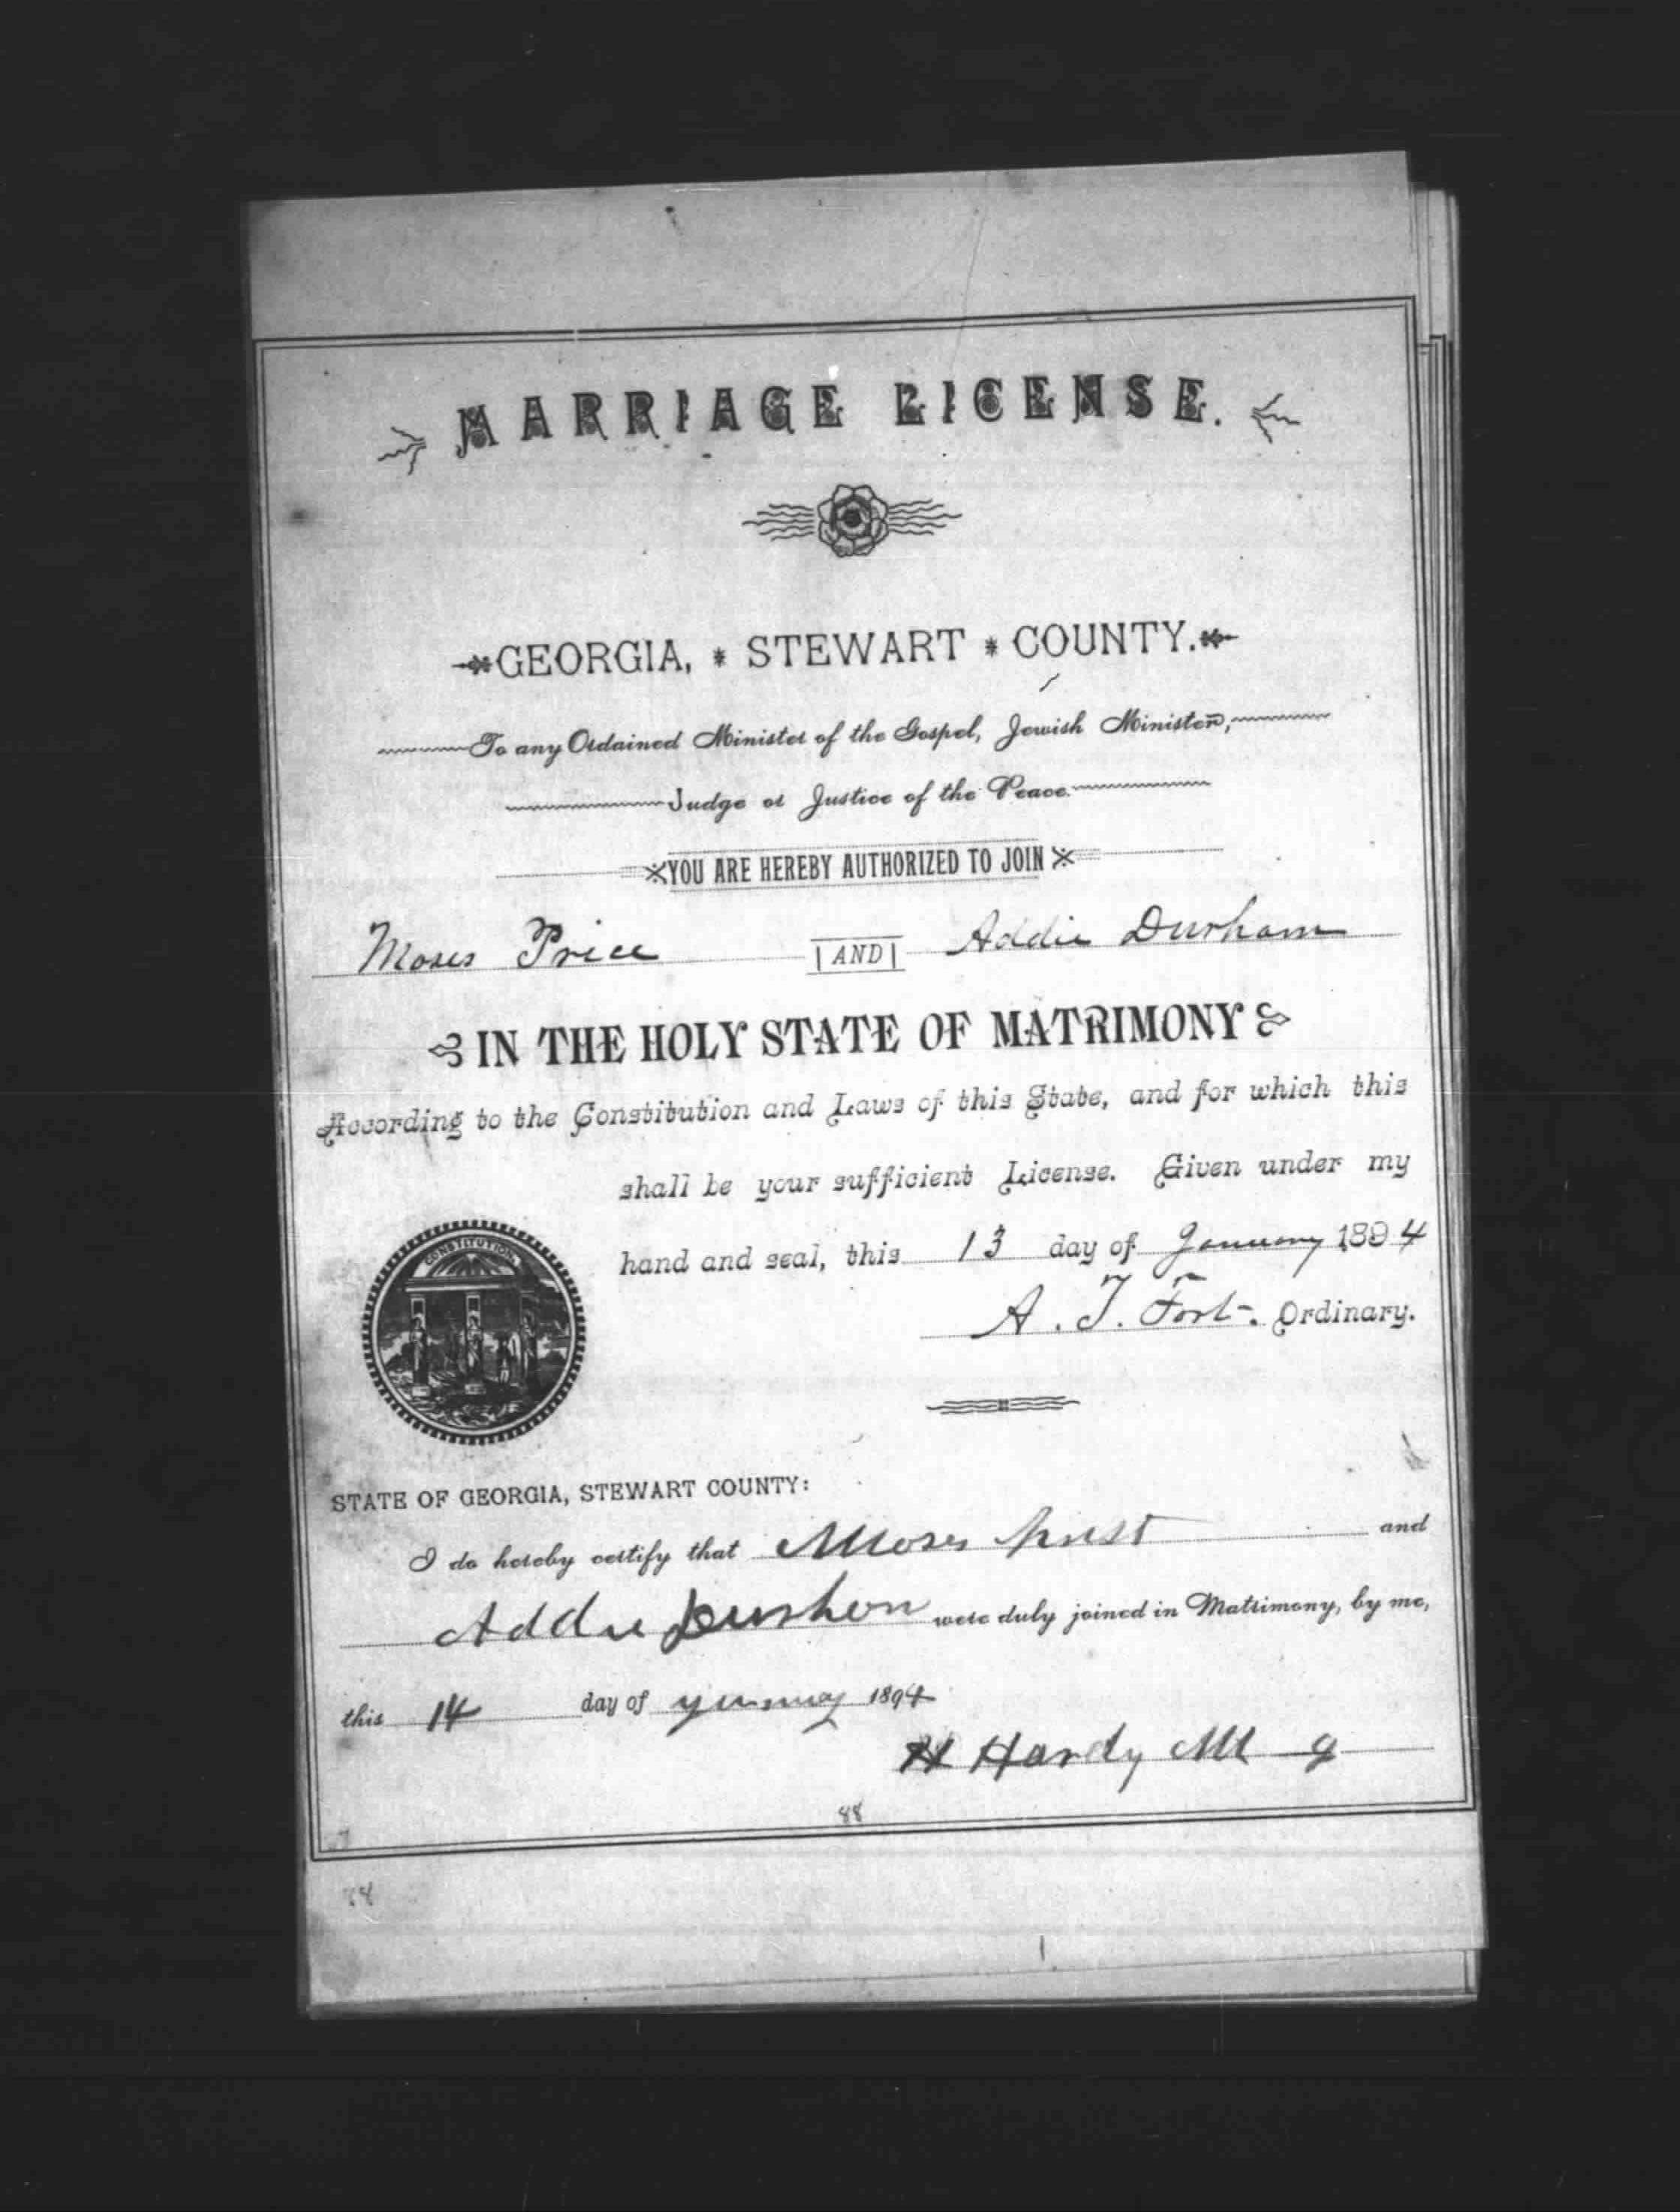 MARRIAGE LICENSE.
GEORGIA, * STEWART * COUNTY.
To any Ordained Minister of the Gospel, Jewish Minister,
Judge or Justice of the Peace.
YOU ARE HEREBY AUTHORIZED TO JOIN
Moses Price AND Addie Durham
IN THE HOLY STATE OF MATRIMONY
According to the Constitution and Laws of this State, and for which this
shall be your sufficient License. Given under my
hand and seal, this 13 day of January 1894
A. T. Fort. Ordinary.
CONSTITUTION
STATE OF GEORGIA, STEWART COUNTY:
I do hereby certify that Moses and
Addie Durhon were duly joined in Matrimony, by me,
this 14 day of 1894
H Hardy M g
88